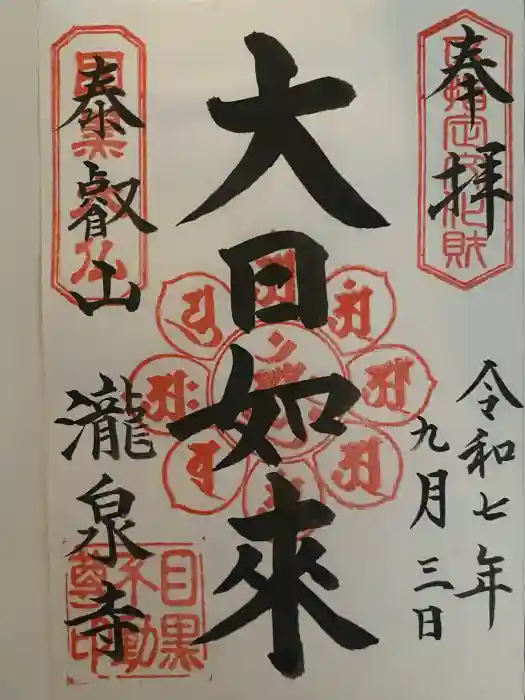 奉拝
令和七年
九月三日
大日如來
泰叡山
瀧泉寺
目黒
不動
尊印